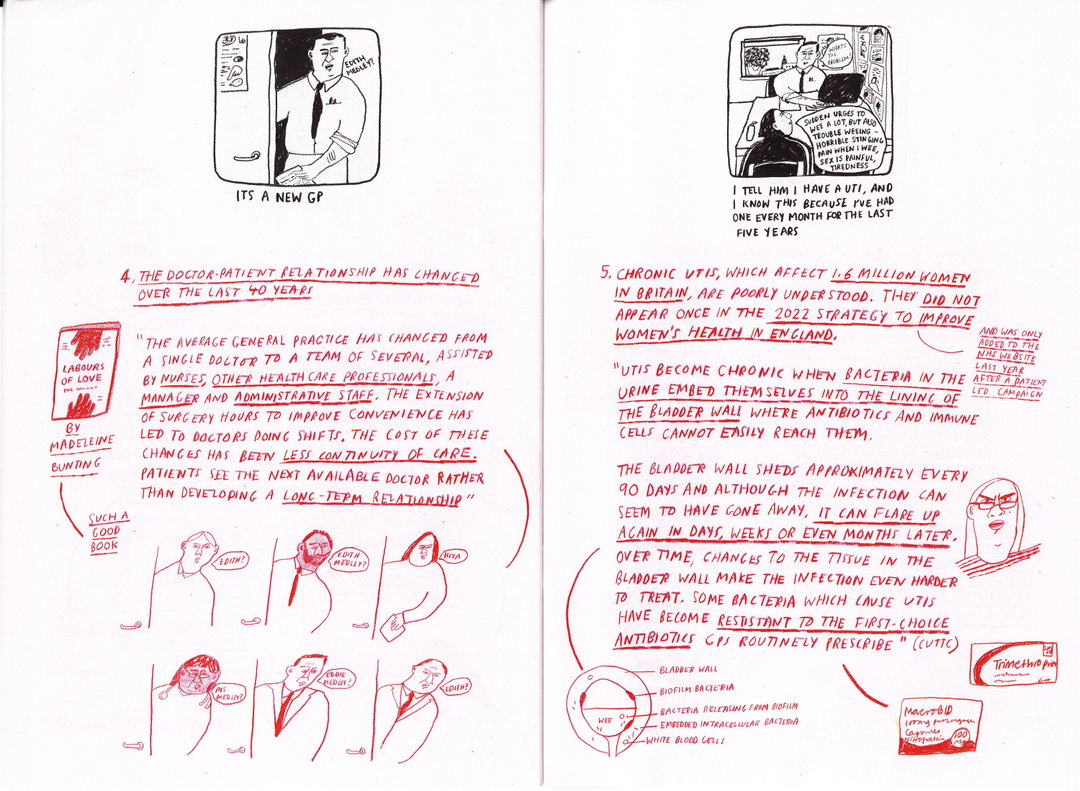 EDITH
MEDLEY?
ITS A NEW GP
4. THE DOCTOR-PATIENT RELATIONSHIP HAS CHANGED
OVER THE LAST 40 YEARS
LABOURS
OF LOVE
BY
MADELEINE
BUNTING
SUCH A
GOOD
BOOK
"THE AVERAGE GENERAL PRACTICE HAS CHANGED FROM
A SINGLE DOCTOR TO A TEAM OF SEVERAL, ASSISTED
BY NURSES, OTHER HEALTH CARE PROFESSIONALS, A
MANAGER AND ADMINISTRATIVE STAFF. THE EXTENSION
OF SURGERY HOURS TO IMPROVE CONVENIENCE HAS
LED TO DOCTORS DOING SHIFTS. THE COST OF THESE
CHANGES HAS BEEN LESS CONTINUITY OF CARE.
PATIENTS SEE THE NEXT AVAILABLE DOCTOR RATHER
THAN DEVELOPING A LONG-TERM RELATIONSHIP"
EDITH?
EDITH
MEDLEY?
HIYA
MS
MEDLEY?
EDDIE
MEDLEY?
EDITH?
WHATS
THE
PROBLEM?
SUDDEN URGES TO
WEE A LOT, BUT ALSO
TROUBLE WEEING -
HORRIBLE STINGING
PAIN WHEN I WEE,
SEX IS PAINFUL,
TIREDNESS
I TELL HIM I HAVE A UTI, AND
I KNOW THIS BECAUSE I'VE HAD
ONE EVERY MONTH FOR THE LAST
FIVE YEARS
5. CHRONIC UTIS, WHICH AFFECT 1.6 MILLION WOMEN
IN BRITAIN, ARE POORLY UNDERSTOOD. THEY DID NOT
APPEAR ONCE IN THE 2022 STRATEGY TO IMPROVE
WOMEN'S HEALTH IN ENGLAND.
AND WAS ONLY
ADDED TO THE
NHS WEBSITE
LAST YEAR
AFTER A PATIENT
LED CAMPAIGN
"UTIS BECOME CHRONIC WHEN BACTERIA IN THE
URINE EMBED THEMSELVES INTO THE LINING OF
THE BLADDER WALL WHERE ANTIBIOTICS AND IMMUNE
CELLS CANNOT EASILY REACH THEM.
THE BLADDER WALL SHEDS APPROXIMATELY EVERY
90 DAYS AND ALTHOUGH THE INFECTION CAN
SEEM TO HAVE GONE AWAY, IT CAN FLARE UP
AGAIN IN DAYS, WEEKS OR EVEN MONTHS LATER.
OVER TIME, CHANGES TO THE TISSUE IN THE
BLADDER WALL MAKE THE INFECTION EVEN HARDER
TO TREAT. SOME BACTERIA WHICH CAUSE UTIS
HAVE BECOME RESTISTANT TO THE FIRST-CHOICE
ANTIBIOTICS GPS ROUTINELY PRESCRIBE" (CUTIC)
BLADDER WALL
BIOFILM BACTERIA
BACTERIA RELEASING FROM BIOFILM
EMBEDDED INTRACELLULAR BACTERIA
WHITE BLOOD CELLS
WEE
Trimethroprim
MacroBID
100mg
Capsules
Nitrofurantoin
100
Mg